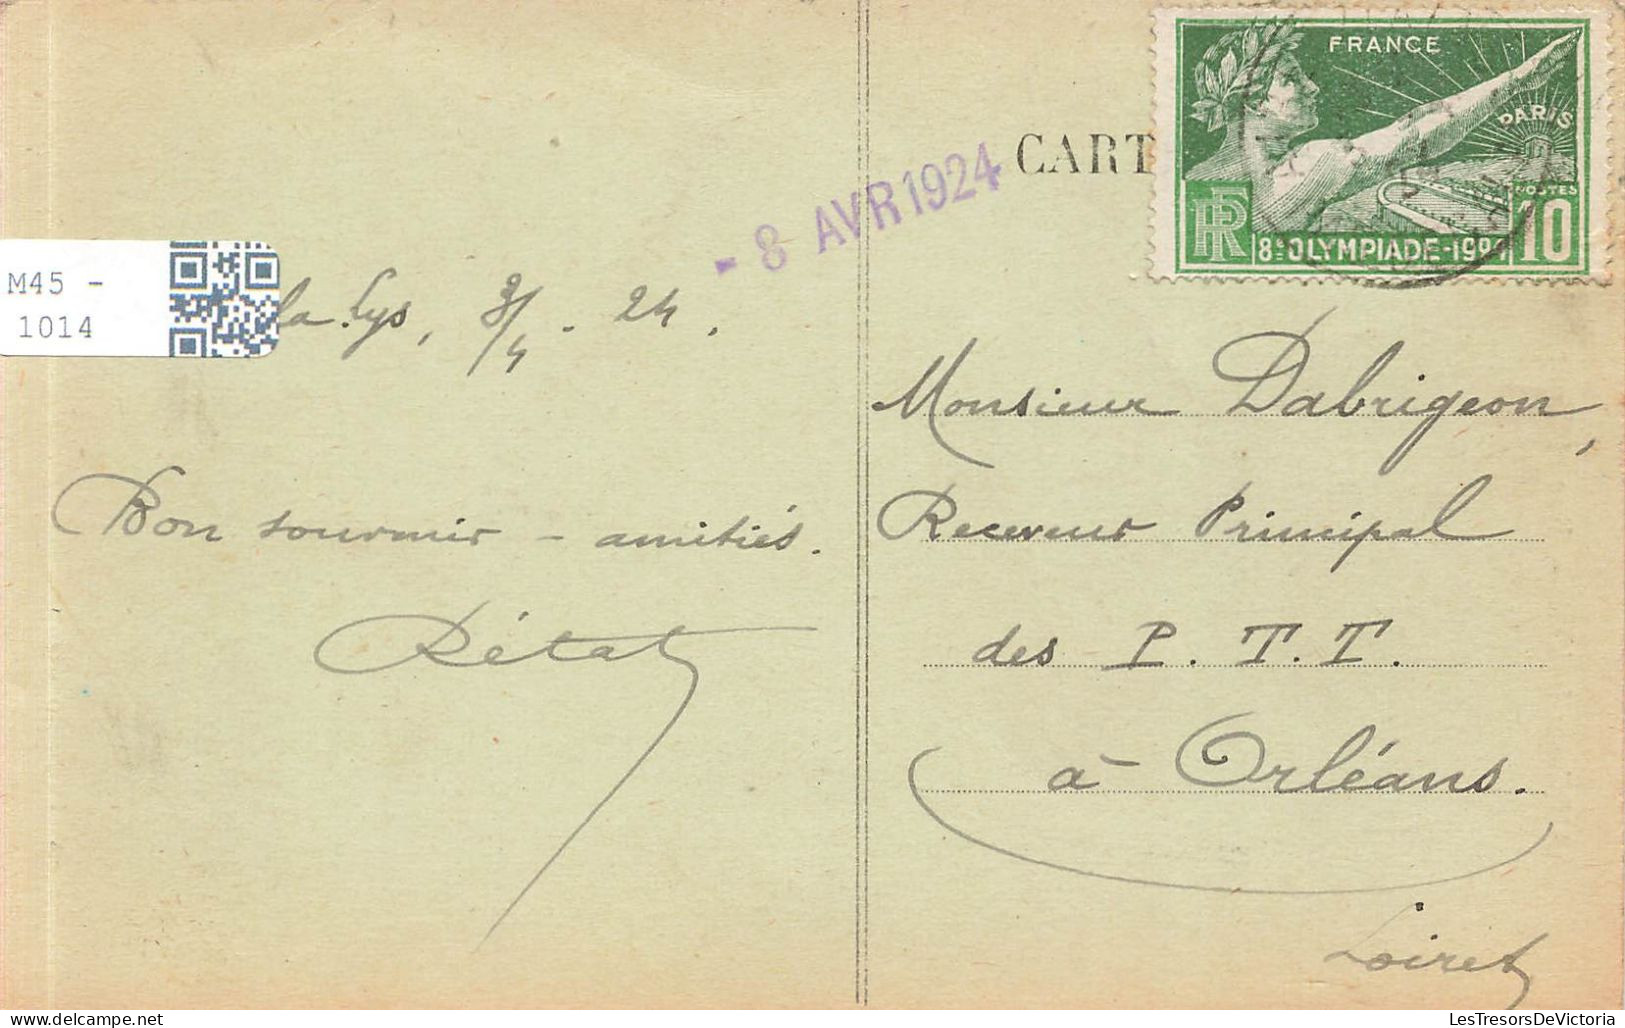 FRANCE
PARIS
POSTES
RF
8e OLYMPIADE-1924
10
CART
- 8 AVR 1924
M45 -
1014
la Lys, 3/4 - 24.
Bon souvenir - amitiés.
Rétat
Monsieur Dabrigeon,
Receveur Principal
des P. T. T.
à Orléans.
Loiret
LesTresorsDeVictoria